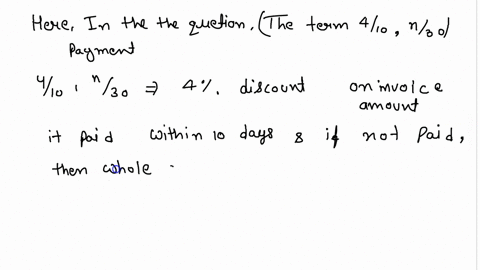 Here, In the the quetion, (The term 4/10, n/30)
Payment
4/10, n/30 ⇒ 4%. discount on invoice
amount
it paid within 10 days & if not paid,
then whole